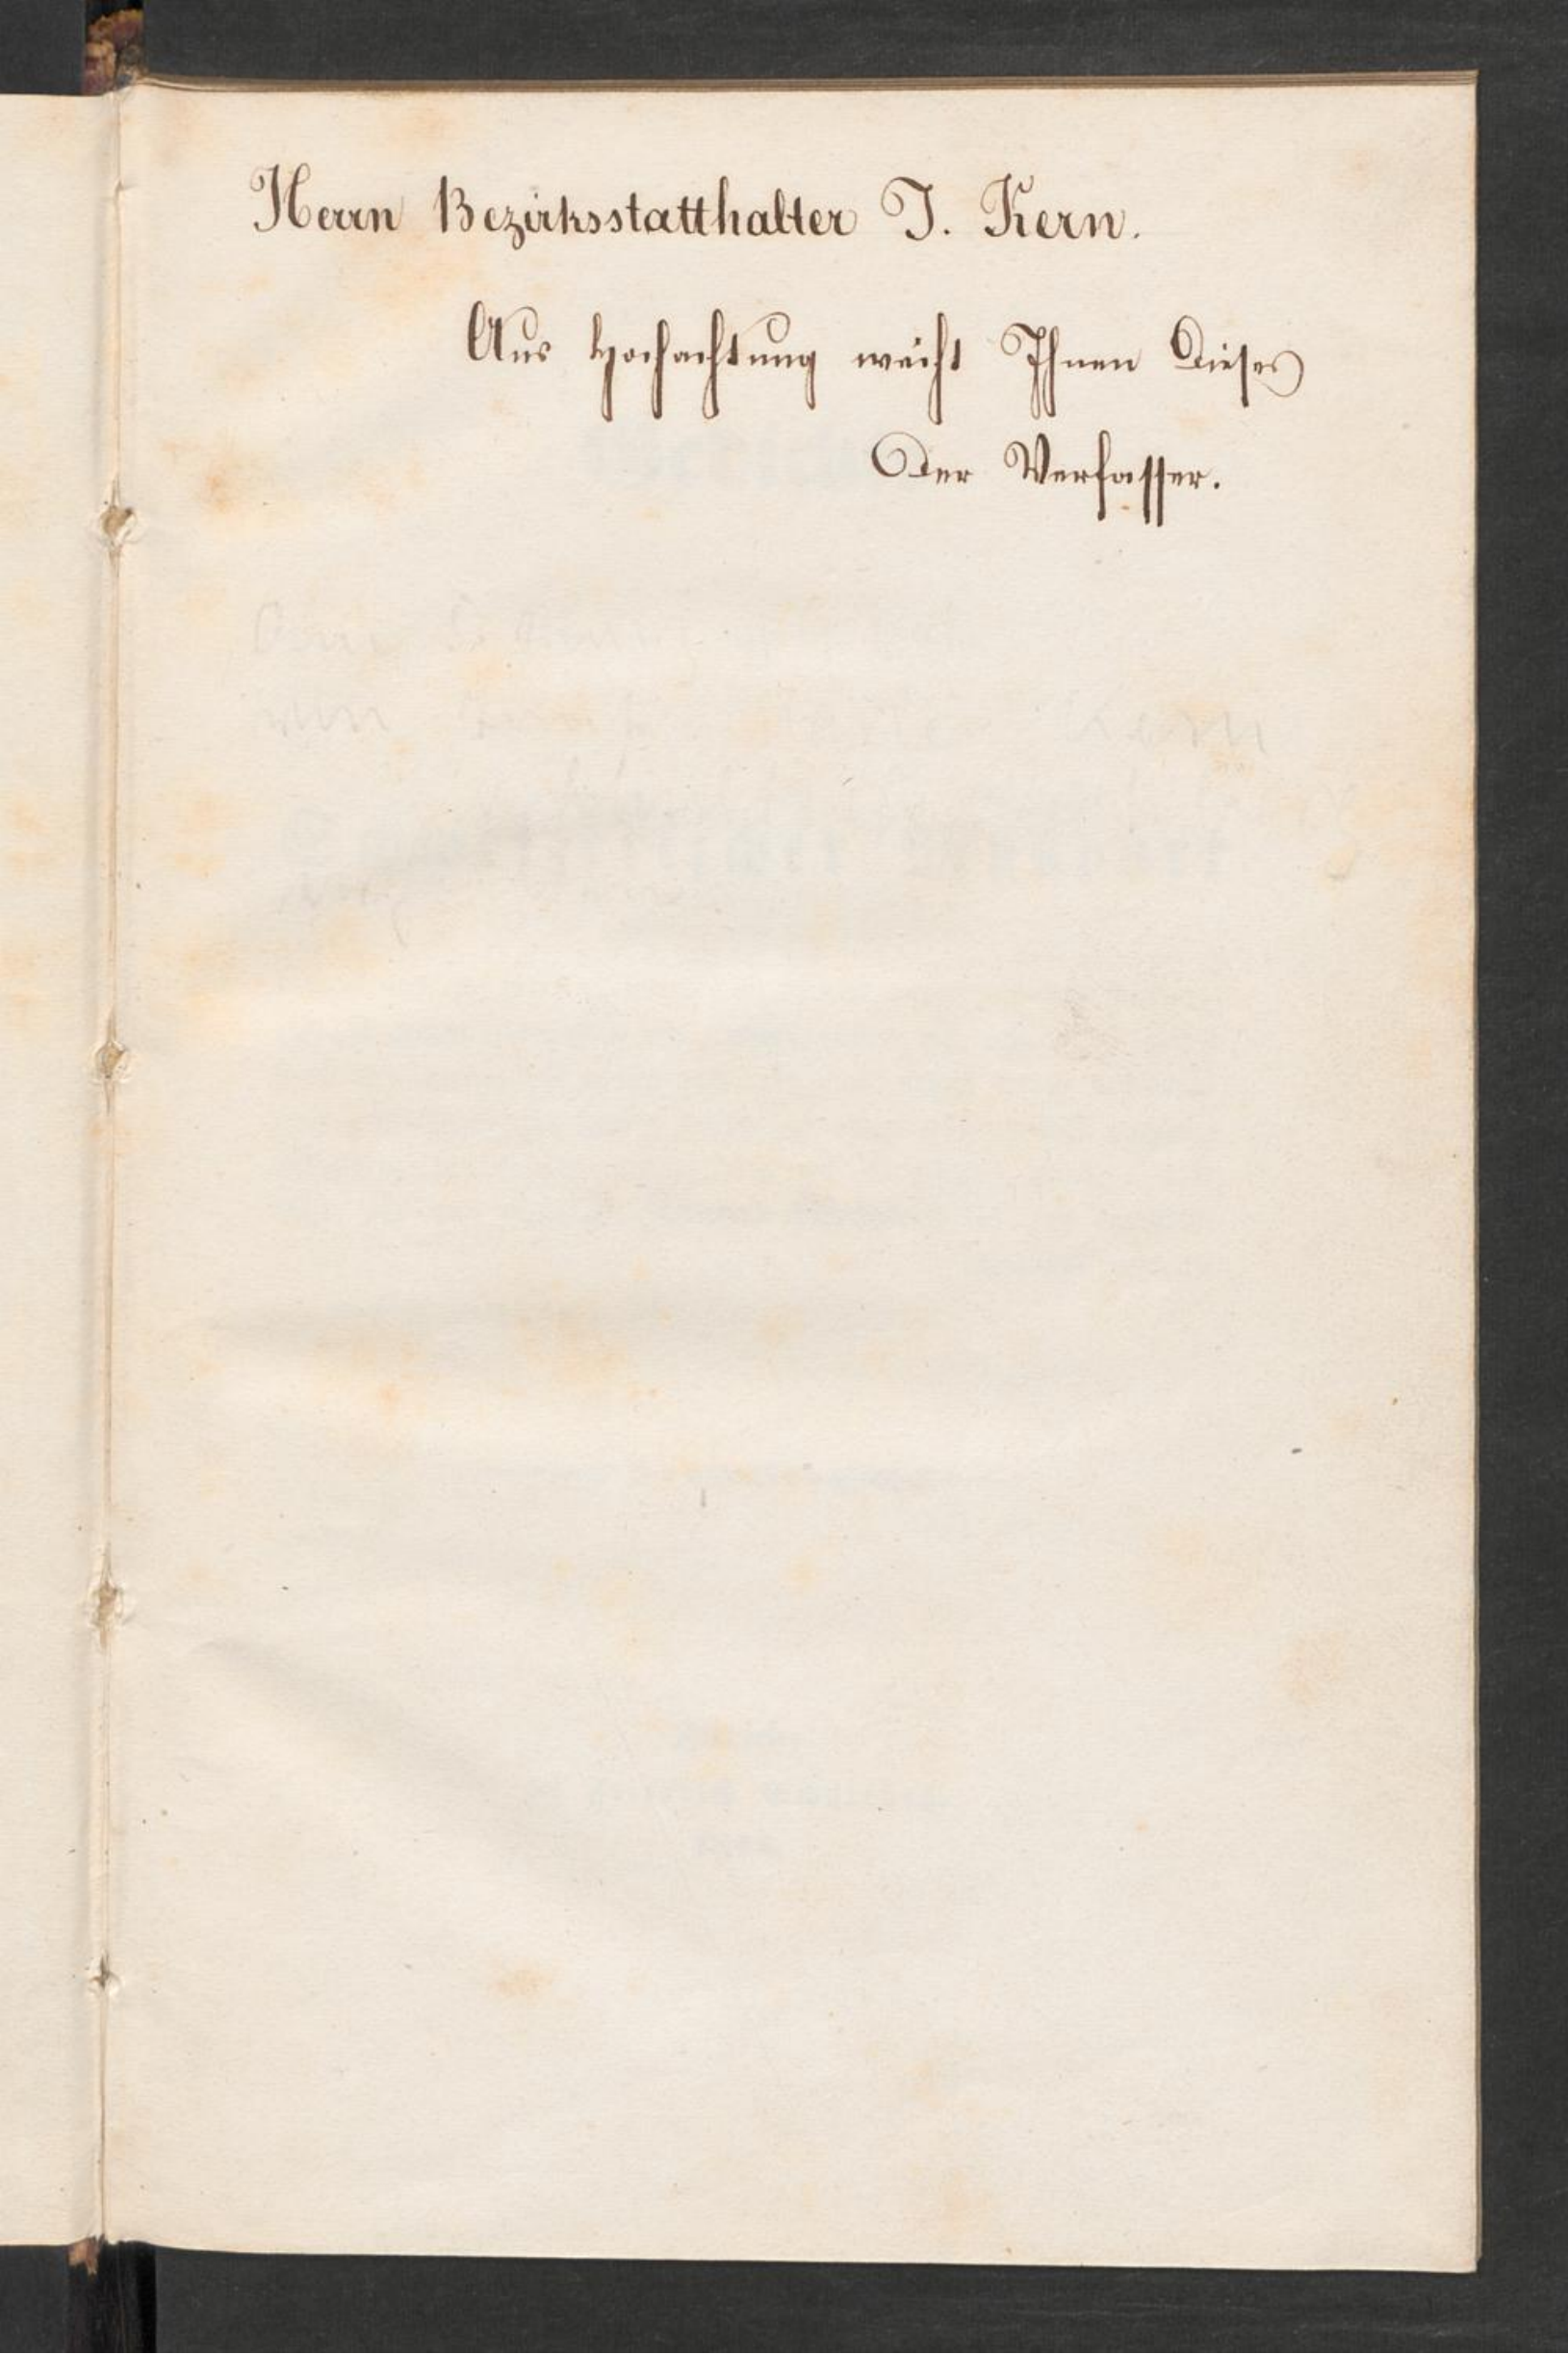 Herrn Bezirksstatthalter J. Kern.
Aus Hochachtung weiht Ihnen Dieses
Der Verfasser.